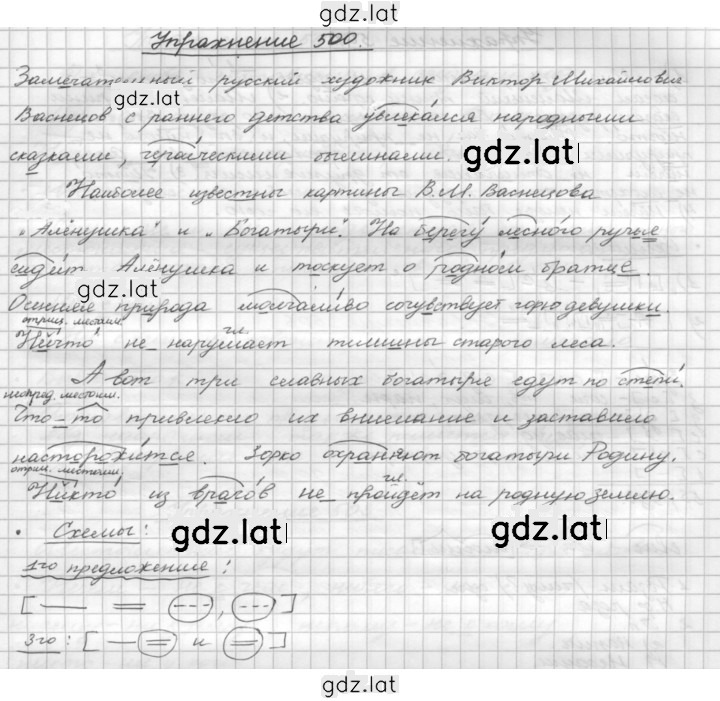 gdz.lat
Упражнение 500.
Замечательный русский художник Виктор Михайлович
gdz.lat
Васнецов с раннего детства увлекался народными
сказками, героическими былинами.
gdz.lat
Наиболее известны картины В.М. Васнецова
"Алёнушка" и "Богатыри". На берегу лесного ручья
сидит Алёнушка и тоскует о родном братце.
gdz.lat
Осенняя природа молчаливо сочувствует горю девушки.
отриц. местоим.
гл.
Ничто не нарушает тишины старого леса.
А вот три славных богатыря едут по степи.
неопред. местоим.
Что-то привлекло их внимание и заставило
насторожится. Зорко охраняют богатыри Родину.
отриц. местоим.
гл.
Никто из врагов не пройдёт на родную землю.
• Схемы:
gdz.lat
gdz.lat
1го предложение:
[ , ]
3го: [ и ]
gdz.lat